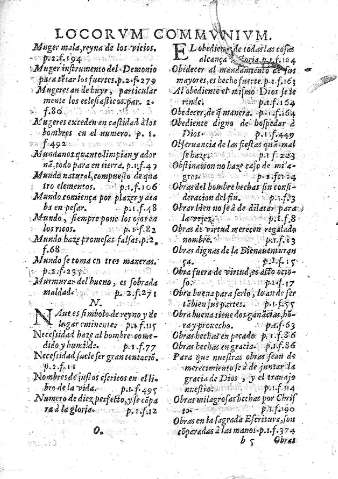 LOCORVM COMMVNIVM.
Muger mala, reyna de los vicios.
p.2.f.194
Muger instrumento del Demonio
para tirar los fuertes. p.2.f.279
Mugeres an de huyr, particular
mente los eclesiasticos. par. 2.
f.80
Mugeres exceden en castidad à los
hombres en el numero. p. 1.
f.492
Mundanos quanto limpien y ador
nã, todo para en tierra. p.1.f.47
Mundo natural, compuesto de qua
tro elementos. p.1.f.106
Mundo comiença por plazer y aca
ba en pesar. p.1.f.48
Mundo, siempre pone los ojos en
los ricos. p.1.f.82
Mundo haze promesas falsas. p.2.
f.68
Mundo se toma en tres maneras.
p.2.f.235
Murmurar del bueno, es sobrada
maldad. p.2.f.271
N.
NAue es simbolo de reyno y de
lugar eminente. p.1.f.115
Necesidad haze al hombre come-
dido y humilde. p.1.f.77
Necesidad suele ser gran tentaciõ.
p.2.f.11
Nombres de justos escritos en el li
bro de la vida. p.1.f.495
Numero de diez perfecto, y se cõpa
ra à la gloria. p.1.f.12
O.
EL obediente de todas las cosas
alcança victoria. p.1.f.104
Obedecer al mandamiento de sus
mayores, es hecho fuerte. p.1.f.161
Al obediente el mismo Dios se le
rinde. p.1.f.164
Obedecer, de que manera. p.1.f.164
Obediente digno de hospedar à
Dios. p.1.f.449
Obseruancia de las fiestas quã mal
se haze. p.1.f.223
Obstinacion no haze caso de mila-
gros. p.1.f.124
Obras del hombre hechas sin consi-
deracion del fin. p.1.f.3
Obrar bien no se à de dilatar para
la vejez. p.1.f.8
Obras de virtud merecen regalado
nombre. p.1.f.13
Obras dignas de la Bienauenturan
ça. p.1.f.15
Obra fuera de virtud, es acto ocio-
so. p.1.f.17
Obra buena para serlo, lo an de ser
tãbien sus partes. p.1.f.55
Obra buena tiene dos ganãcias, hõ-
ra y prouecho. p.1.f.63
Obras hechas en pecado. p.1.f.86
Obras hechas en gracia. p.1.f.86
Para que nuestras obras sean de
merecimiento se à de juntar la
gracia de Dios, y el trabajo
nuestro. p.1.f.114
Obras milagrosas hechas por Chris
to. p.1.f.190
Obras en la sagrada Escritura, son
cõparadas à las manos. p.1.f.374
b 5 Obras